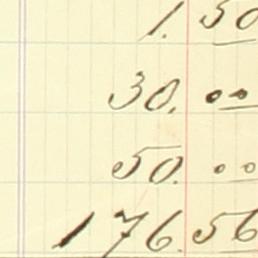 1. 50
30. 00
50. 00
176. 56